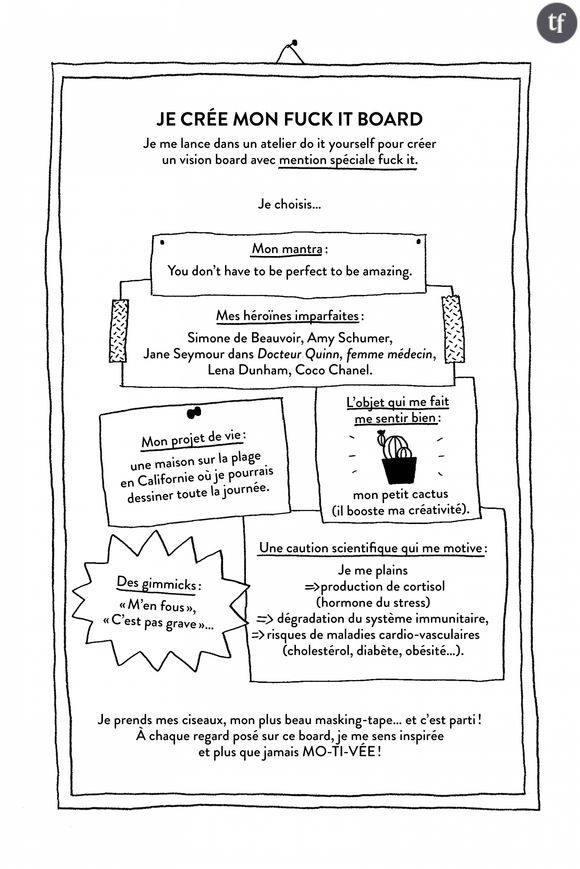 tf
JE CRÉE MON FUCK IT BOARD
Je me lance dans un atelier do it yourself pour créer
un vision board avec mention spéciale fuck it.
Je choisis...
Mon mantra :
You don't have to be perfect to be amazing.
Mes héroïnes imparfaites :
Simone de Beauvoir, Amy Schumer,
Jane Seymour dans Docteur Quinn, femme médecin,
Lena Dunham, Coco Chanel.
Mon projet de vie :
une maison sur la plage
en Californie où je pourrais
dessiner toute la journée.
L'objet qui me fait
me sentir bien :
mon petit cactus
(il booste ma créativité).
Des gimmicks :
« M'en fous »,
« C'est pas grave »...
Une caution scientifique qui me motive :
Je me plains
=> production de cortisol
(hormone du stress)
=> dégradation du système immunitaire,
=> risques de maladies cardio-vasculaires
(cholestérol, diabète, obésité...).
Je prends mes ciseaux, mon plus beau masking-tape... et c'est parti !
À chaque regard posé sur ce board, je me sens inspirée
et plus que jamais MO-TI-VÉE !